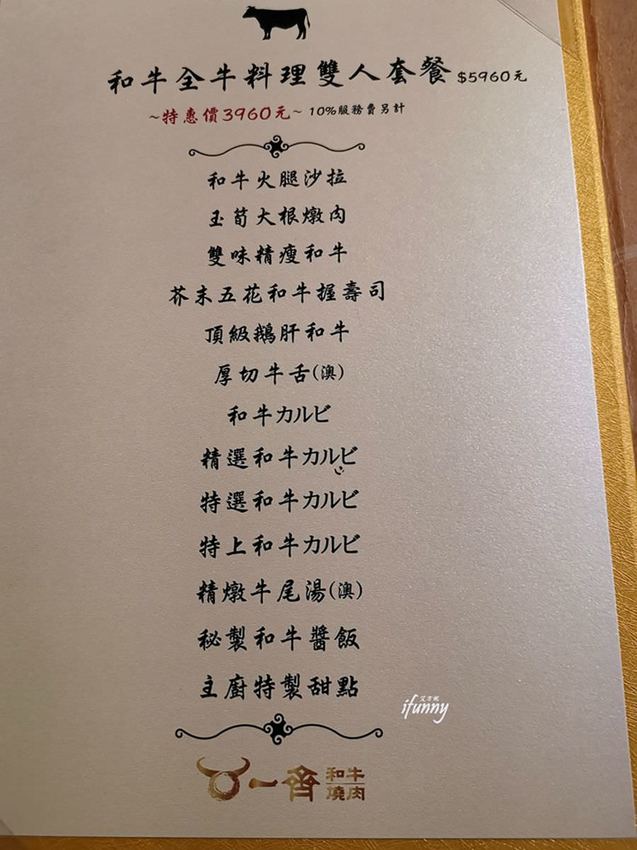 和牛全牛料理雙人套餐 $5960元
~特惠價3960元~ 10%服務費另計
和牛火腿沙拉
玉筍大根燉肉
雙味精瘦和牛
芥末五花和牛握壽司
頂級鵝肝和牛
厚切牛舌(澳)
和牛カルビ
精選和牛カルビ
特選和牛カルビ
特上和牛カルビ
精燉牛尾湯(澳)
秘製和牛醬飯
主廚特製甜點
ifunny
一齊 和牛燒肉